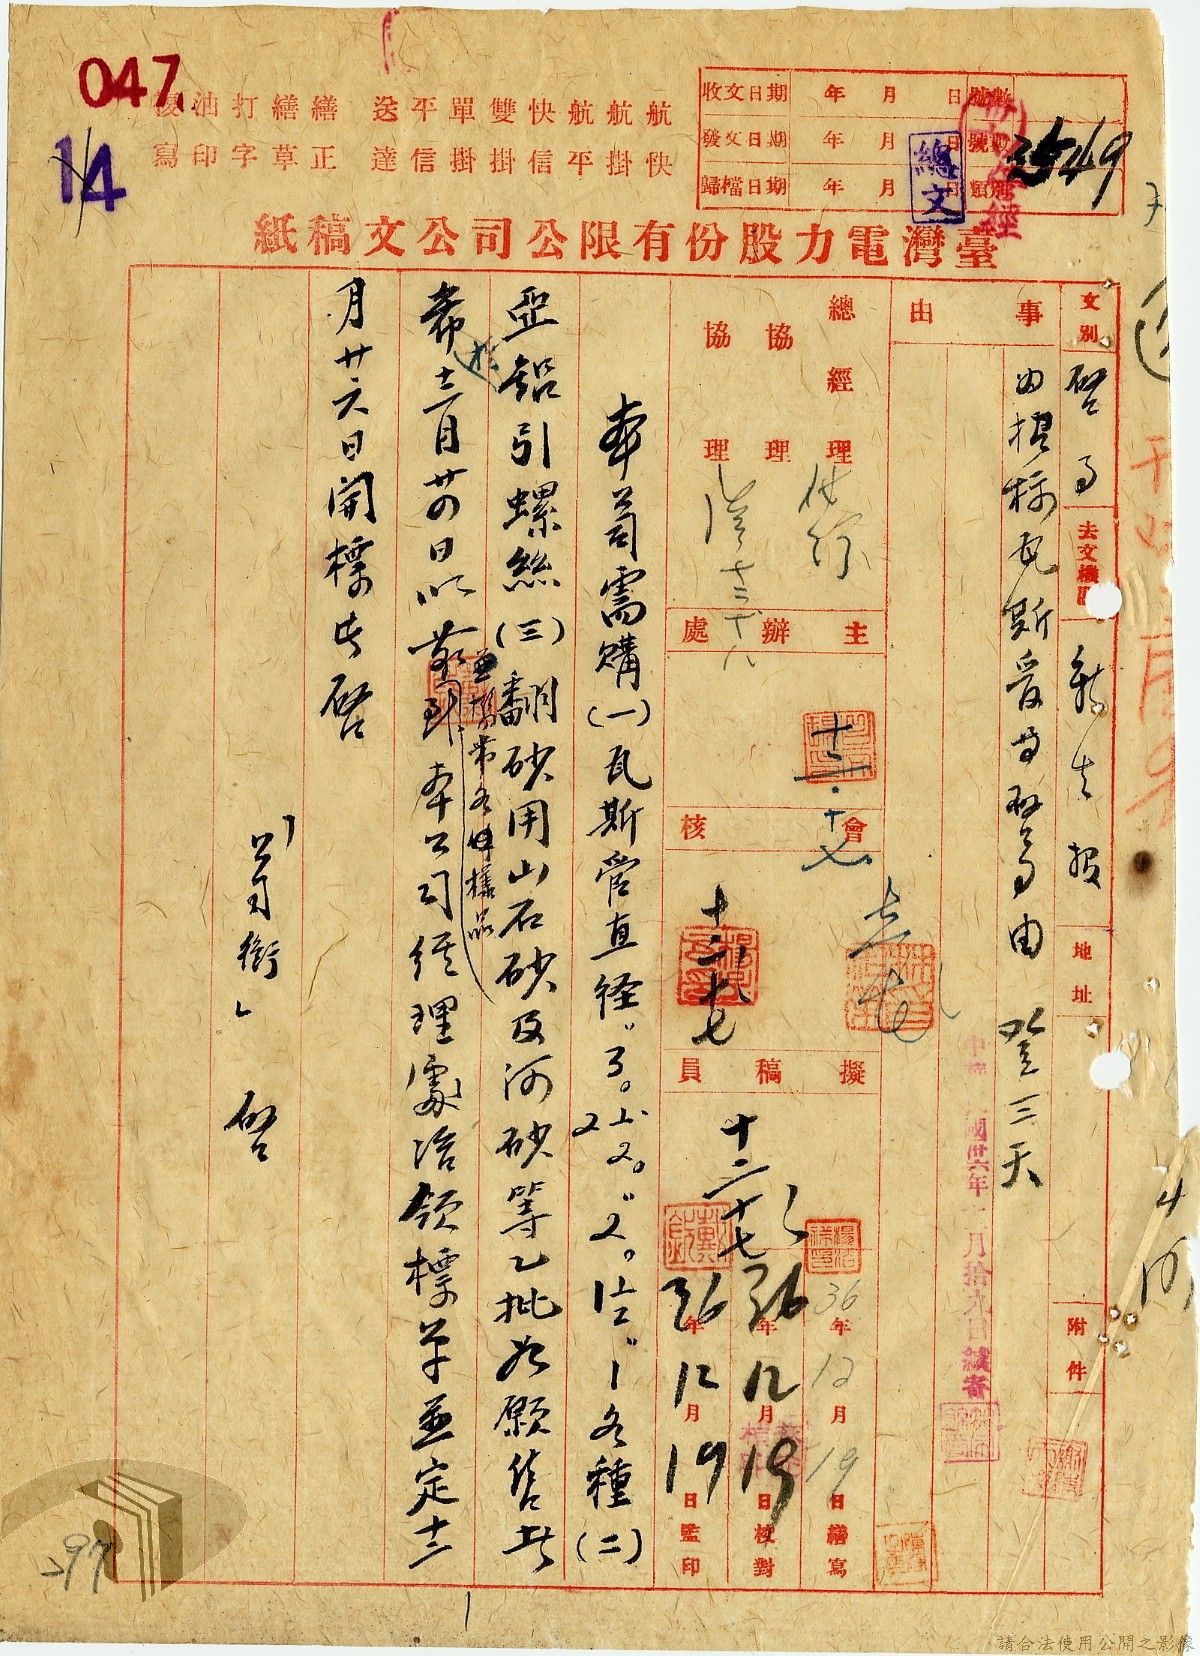 047
14
航快 航掛 航平 快信 雙掛 單掛 平信 送達
繕正 繕草 打字 油印 複寫
收文日期 年 月 日
發文日期 年 月 日
歸檔日期 年 月 日
總文
臺灣電力股份有限公司文稿紙
文別 啓事
去文機關 新生報
地址
附件
事由
由招標瓦斯管等啓事由 登三天
總經理
協理
協理
主辦處
會核
擬稿員
十二·十七
十二十七
36年12月19日繕寫
36年12月19日校對
36年12月19日監印
本公司需購(一)瓦斯管直径"3。2½。"2。1½"1各種(二)
亞鉛引螺絲(三)翻砂用山石砂及河砂等乙批如願售者
並携帶各種樣品
希於十二月廿四日以前到本公司經理處洽領標單並定十二
月廿六日開標此啓
「公司銜」 啓
297
1
請合法使用公開之影像